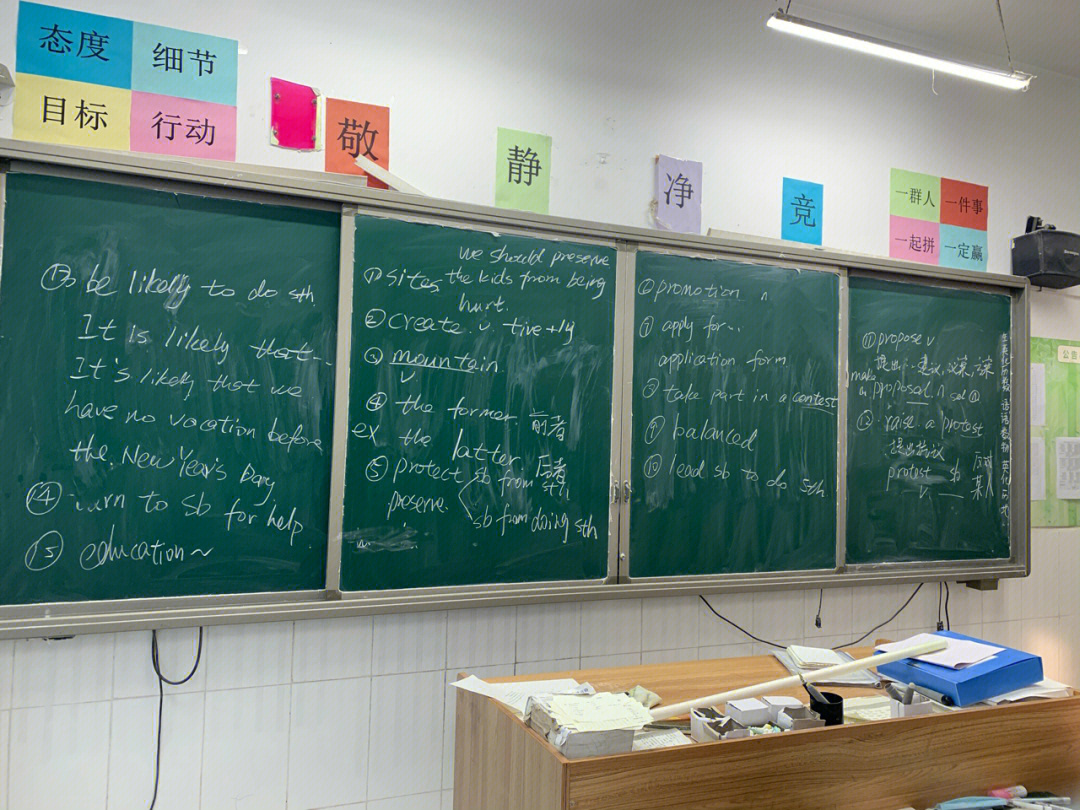 态度 细节
目标 行动
敬
静
净
竞
一群人 一件事
一起拼 一定赢
⑬ be likely to do sth
It is likely that...
It's likely that we
have no vacation before
the New Year's Day
⑭ turn to sb for help
⑮ education~
we should preserve
① sites the kids from being
hurt.
② create v. tive+ly
③ mountain.
v
④ the former. 前者
ex the latter. 后者
⑤ protect sb from sth
preserve. sb from doing sth
⑥ promotion n
⑦ apply for...
application form
⑧ take part in a contest
⑨ balanced
⑩ lead sb to do sth
⑪ propose v
提出 建议, 议案, 方案
make
a proposal n
⑫ raise a protest
提出抗议
protest sb 反对
v 某人